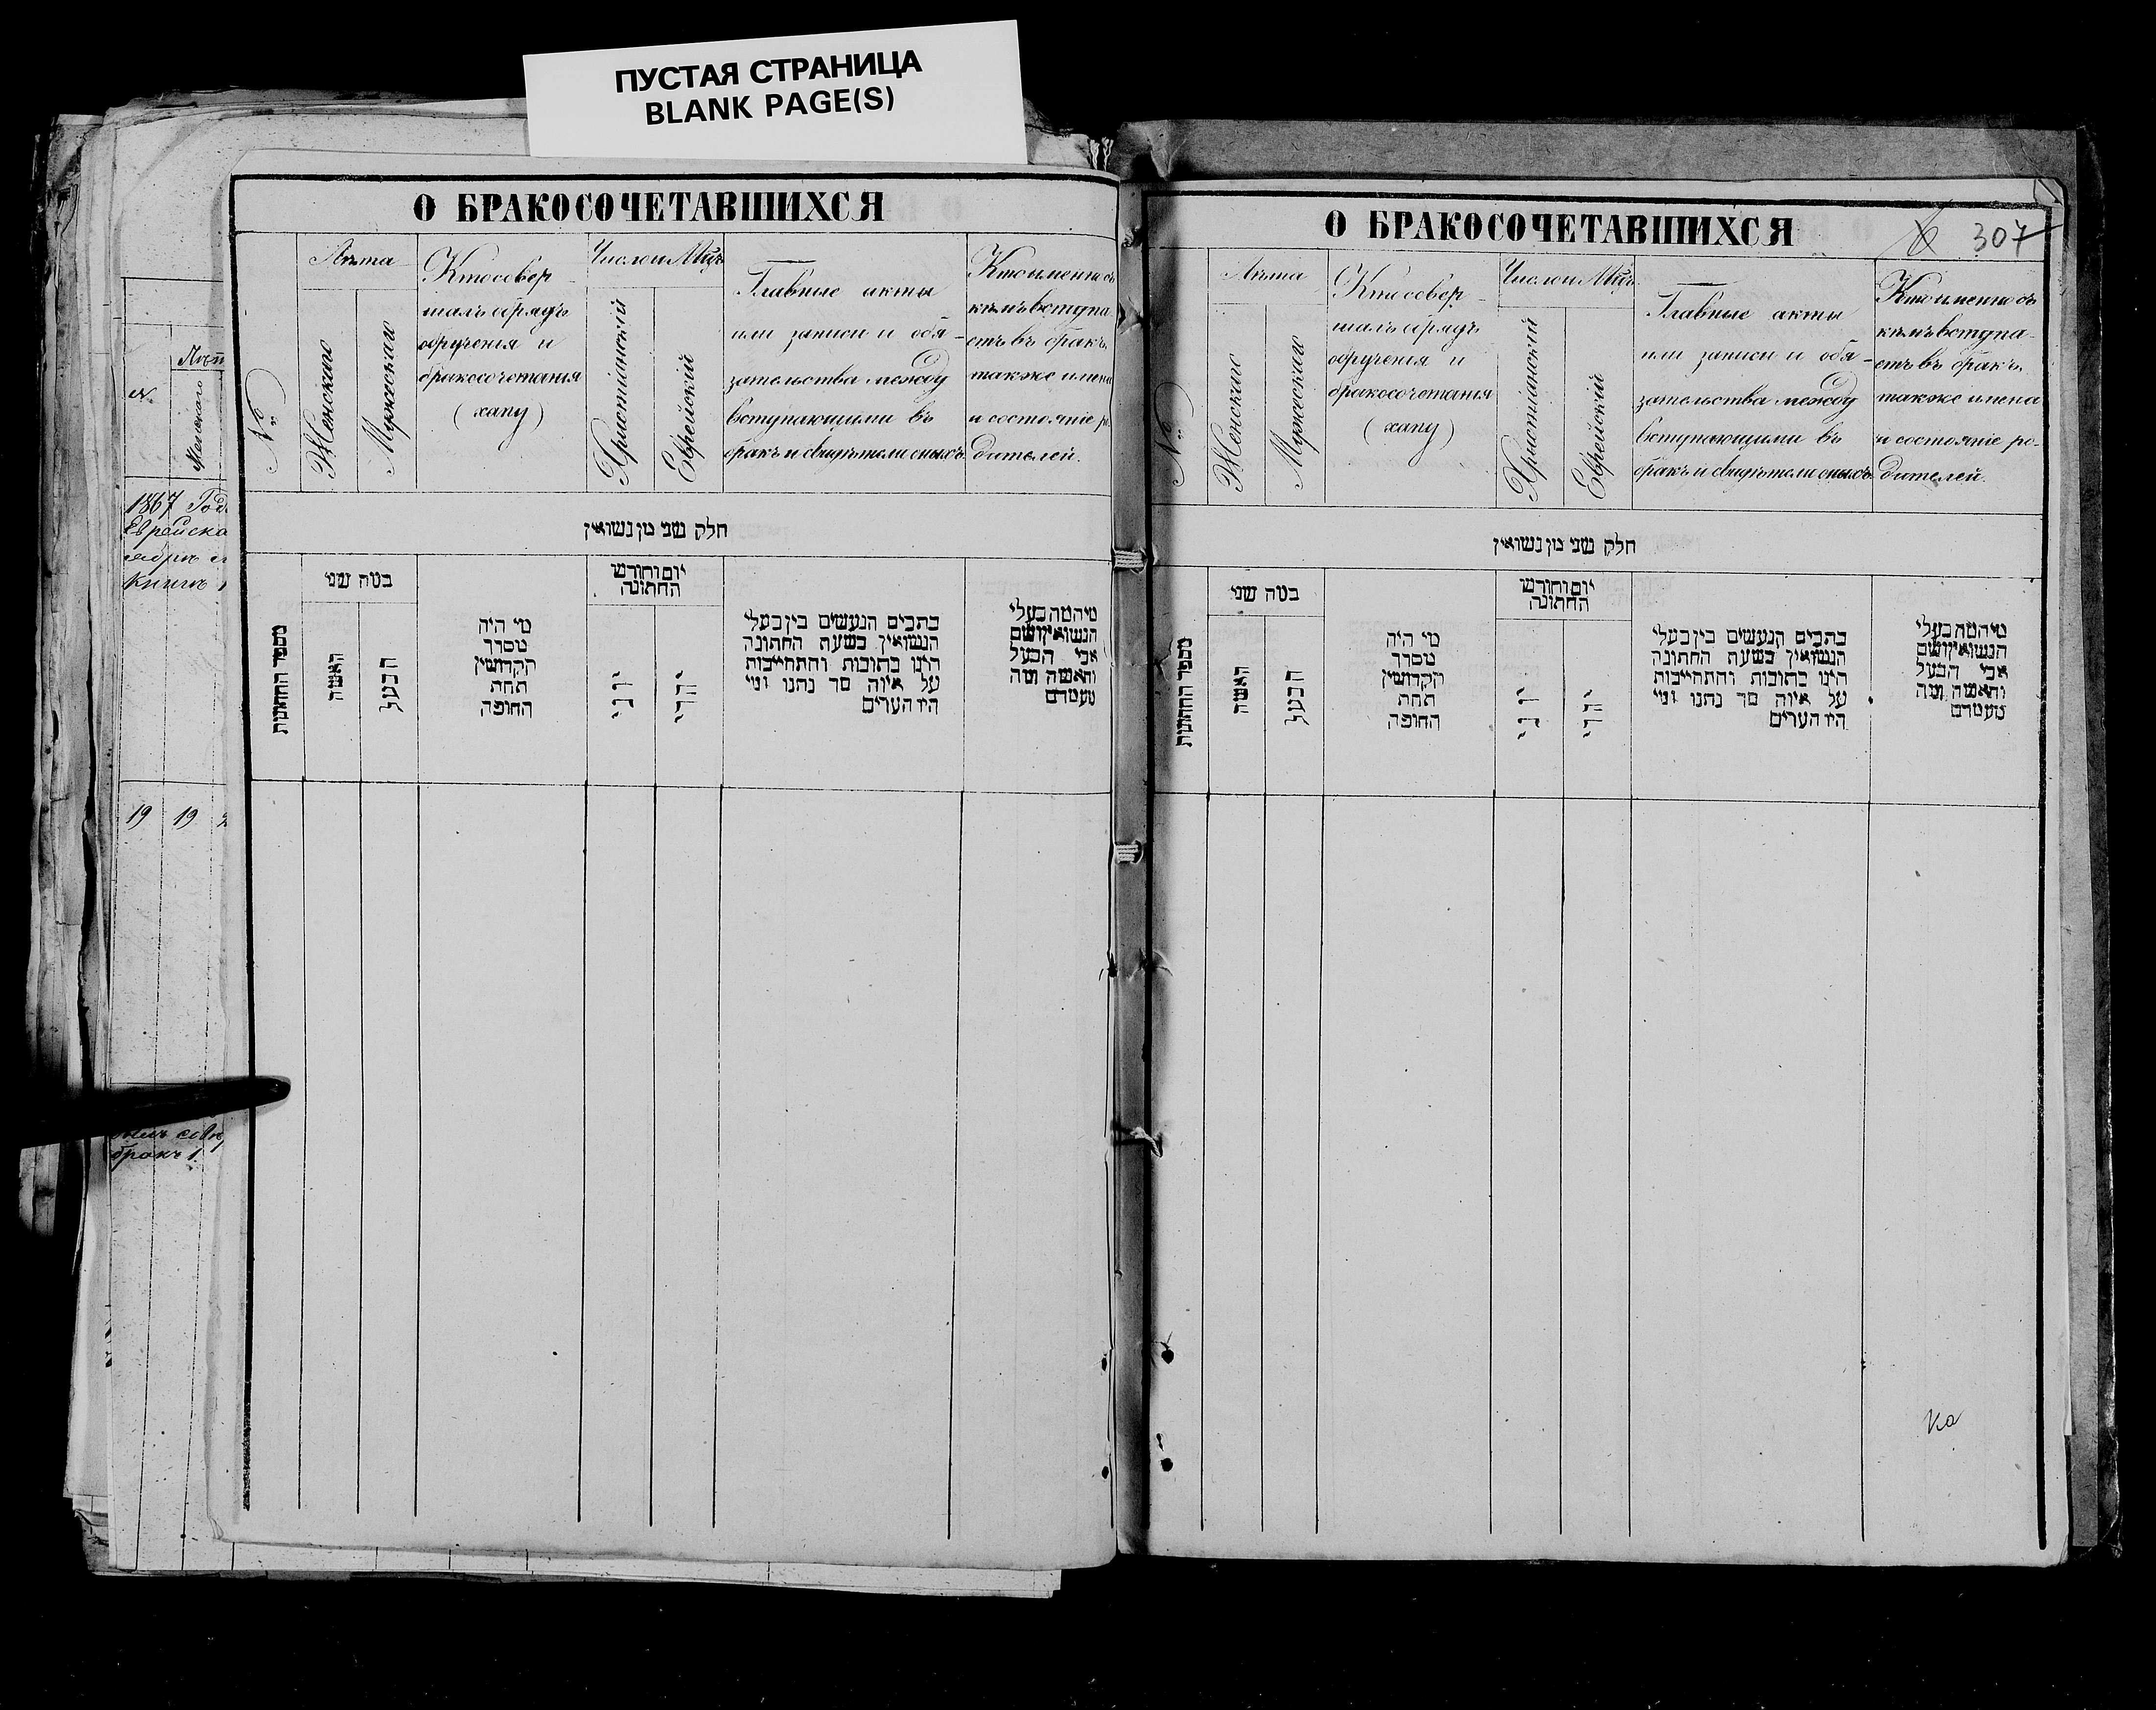 ПУСТАЯ СТРАНИЦА
BLANK PAGE(S)
№
Лѣт
Женскаго
1867 Год
Еврейска
ября и
Книгѣ
19 19
бракъ 1
О БРАКОСОЧЕТАВШИХСЯ
№
Лѣта
Женскаго
Мужескаго
Кто совер-
шалъ обрядъ
обрученія и
бракосочетанія
(хапу)
Число и Мѣць
Христіанскій
Еврейскій
Главные акты
или записи и обя-
зательства между
вступающими въ
бракъ и свидѣтели оныхъ
Кто именно съ
кѣмъ вступа
етъ въ бракъ,
также имена
и состояніе ро
дителей.
חלק שני מן נשואין
מספר החתונות
כמה שני
האשה
הבעל
מי היה
מסדר
הקדושין
תחת
החופה
יום וחודש
החתונה
יוני
יהודי
כתבים הנעשים בין בעלי
הנשואין בשעת החתונה
היינו כתובות והתחייבות
על איזה סך נתנו ומי
היו העדים
מי המה בעלי
הנשואין ושם
אבי הבעל
והאשה ומה
מעמדם
О БРАКОСОЧЕТАВШИХСЯ
307
№
Лѣта
Женскаго
Мужескаго
Кто совер-
шалъ обрядъ
обрученія и
бракосочетанія
(хапу)
Число и Мѣць
Христіанскій
Еврейскій
Главные акты
или записи и обя-
зательства между
вступающими въ
бракъ и свидѣтели оныхъ
Кто именно съ
кѣмъ вступа-
етъ въ бракъ,
также имена
и состояніе ро-
дителей.
חלק שני מן נשואין
מספר החתונות
כמה שני
האשה
הבעל
מי היה
מסדר
הקדושין
תחת
החופה
יום וחודש
החתונה
יוני
יהודי
כתבים הנעשים בין בעלי
הנשואין בשעת החתונה
היינו כתובות והתחייבות
על איזה סך נתנו ומי
היו העדים
מי המה בעלי
הנשואין ושם
אבי הבעל
והאשה ומה
מעמדם
ка